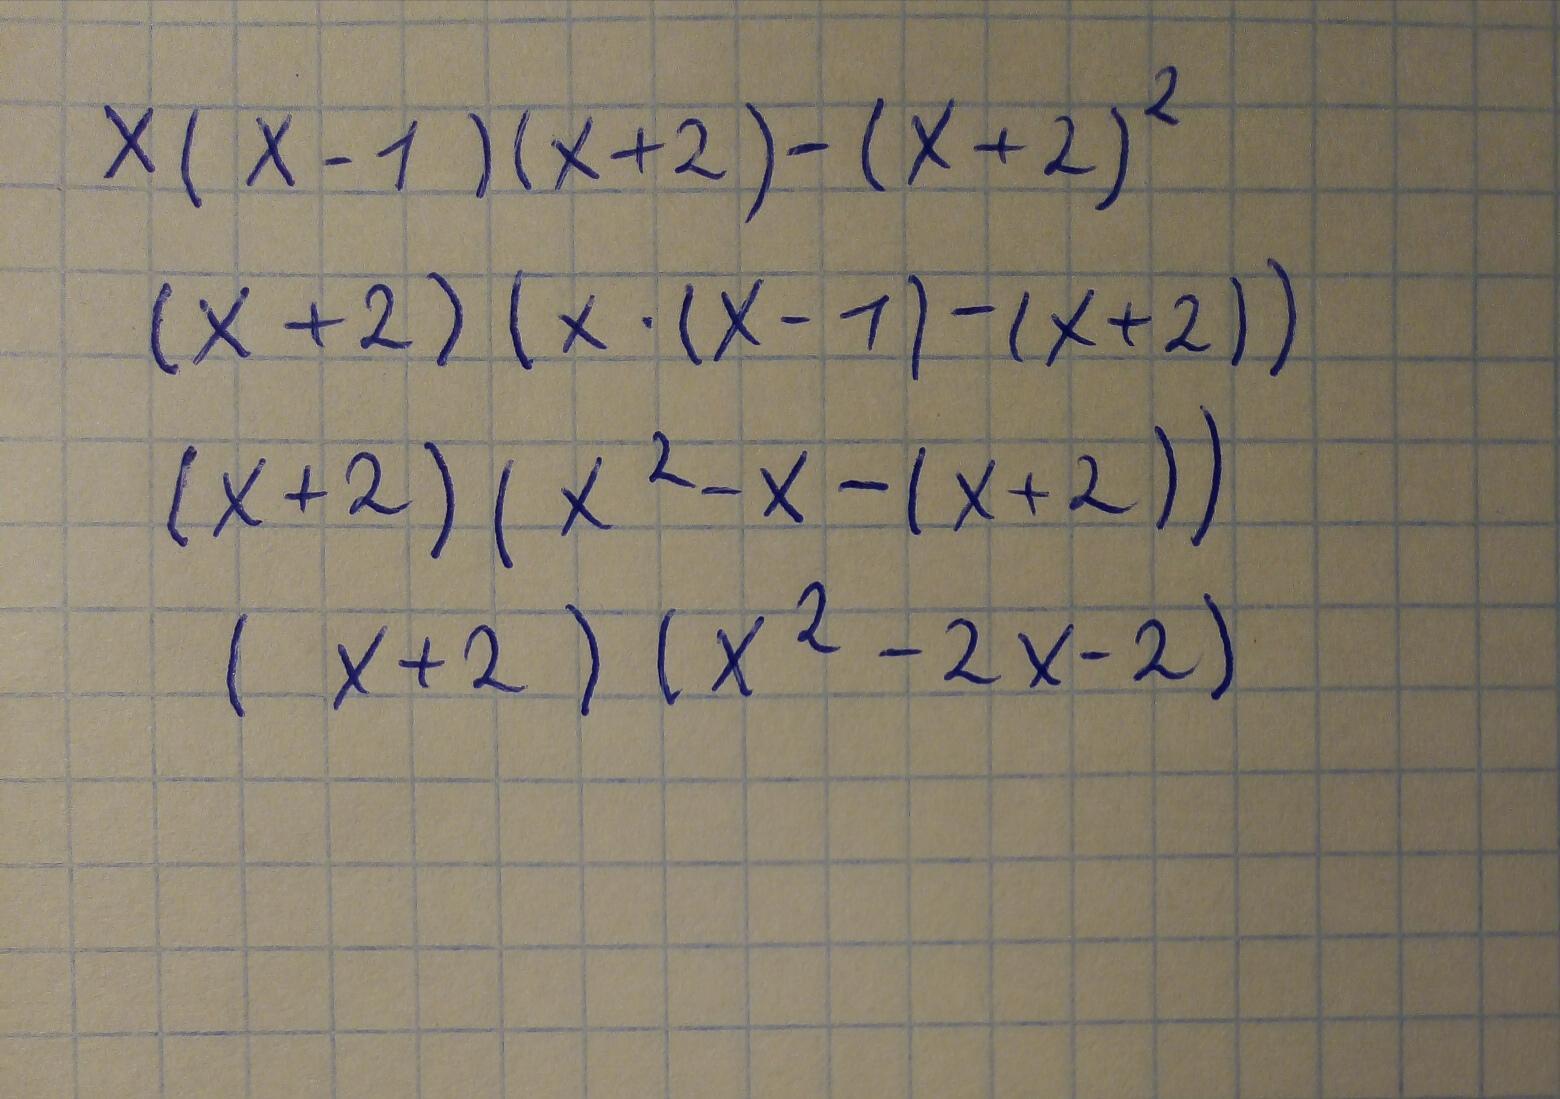 x(x-1)(x+2)-(x+2)²
(x+2)(x·(x-1)-(x+2))
(x+2)(x²-x-(x+2))
(x+2)(x²-2x-2)